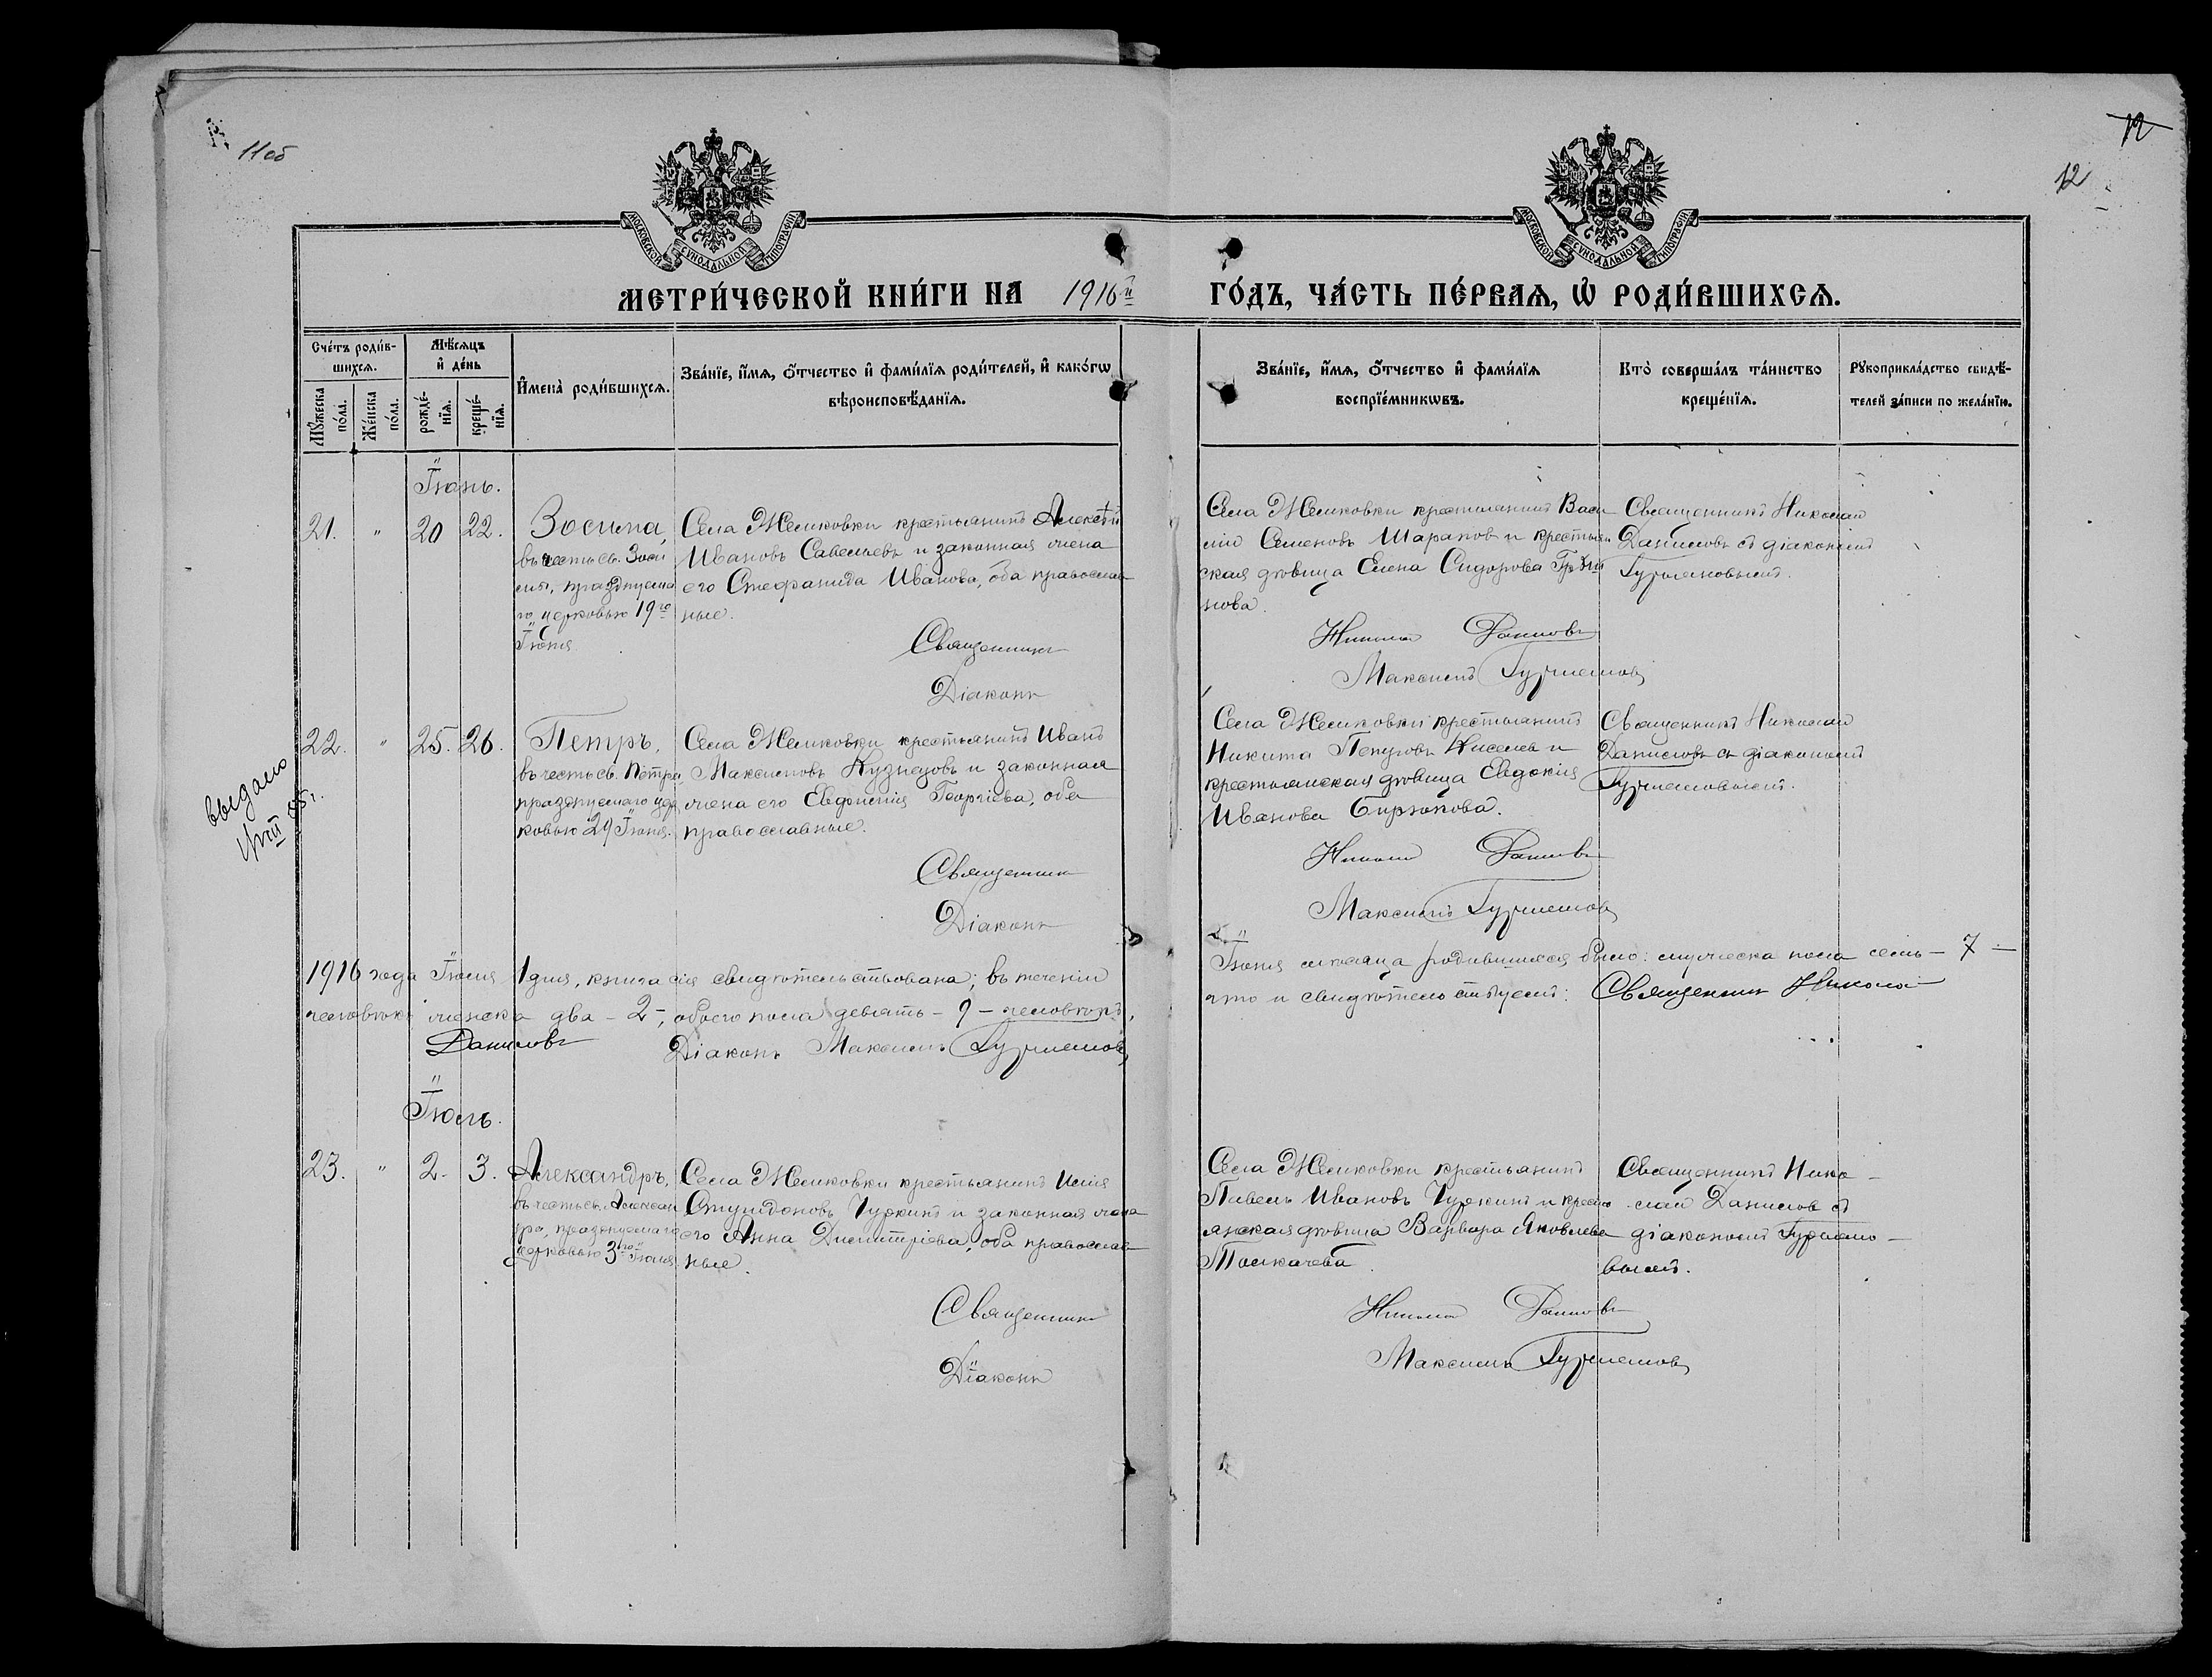 11об
12
12
МОСКОВСКОЙ СѴНОДАЛЬНОЙ ТИПОГРАФІИ
МОСКОВСКОЙ СѴНОДАЛЬНОЙ ТИПОГРАФІИ
МЕТРИ́ЧЕСКОЙ КНИ́ГИ НА 1916й ГО́ДЪ, ЧА́СТЬ ПЕ́РВАѦ, Ѡ РОДИ́ВШИХСѦ.
Сче́тъ роди́в-
шихсѧ.
Мꙋ́жеска по́ла.
Же́нска по́ла.
Мѣ́сѧцъ
и҆ де́нь
рожде́-
нїѧ.
креще́-
нїѧ.
И҆мена̀ роди́вшихсѧ.
Зва́нїе, и҆́мѧ, ѻ҆́тчество и҆ фами́лїѧ роди́телей, и҆ како́гѡ
вѣроисповѣ́данїѧ.
Зва́нїе, и҆́мѧ, ѻ҆́тчество и҆ фами́лїѧ
воспрїе́мникѡвъ.
Кто̀ соверша́лъ та́инство
креще́нїѧ.
Рꙋкоприкла́дство свидѣ́-
телей за́писи по жела́нїю.
Іюнь.
21. " 20 22.
Зосима,
въ честь св. Зоси
мы, празднуема
го церковью 19го
Іюня
Села Жемковки крестьянинъ Алексѣй
Ивановъ Савельевъ и законная жена
его Стефанида Иванова, оба православ
ные.
Священникъ
Діаконъ
Села Жемковки крестьянинъ Васи
лій Семеновъ Шарапов и крестьян
ская дѣвица Елена Сидорова
нова.
Николай Данилов
Максимъ Гурьяновъ
Священникъ Николай
Даниловъ съ діакономъ
Гурьяновымъ.
22. " 25. 26.
Петръ,
въ честь св. Петра
празднуемаго цер
ковью 29 Іюня.
Села Жемковки крестьянинъ Иванъ
Максимовъ Кузнецовъ и законная
жена его Евфимія Георгіева, оба
православные.
Священник
Діаконъ
Села Жемковки крестьянинъ
Никита Киселев и
крестьянская дѣвица Евдокія
Иванова Бирюкова.
Николай Данилов
Максимъ Гурьяновъ
Священникъ Николай
Даниловъ съ діакономъ
Гурьяновымъ.
выдано
1916 года Іюля 1 дня, книга сія свидѣтельствована; въ теченіи Іюня мѣсяца родившихся было: мужеска пола семь – 7 –
человѣкъ женска два – 2 –, обоего пола девять – 9 – человѣкъ, что и свидѣтельствуемъ: Священник Николай
Данилов Діаконъ Максимъ Гурьяновъ
Іюль.
23. " 2. 3.
Александръ,
въ честь св. Алексан
дра, празднуемаго
церковью 3го Іюля
Села Жемковки крестьянинъ Илія
Спиридоновъ Чуркинъ и законная жена
его Анна Димитріева, оба православ
ные.
Священник
Діаконъ
Села Жемковки крестьянинъ
Павелъ Ивановъ Чуркинъ и кресть
янская дѣвица Варвара Яковлева
Толкачева.
Николай Данилов
Максимъ Гурьяновъ
Священникъ Нико-
лай Данилов съ
діакономъ Гурьяно-
вымъ.